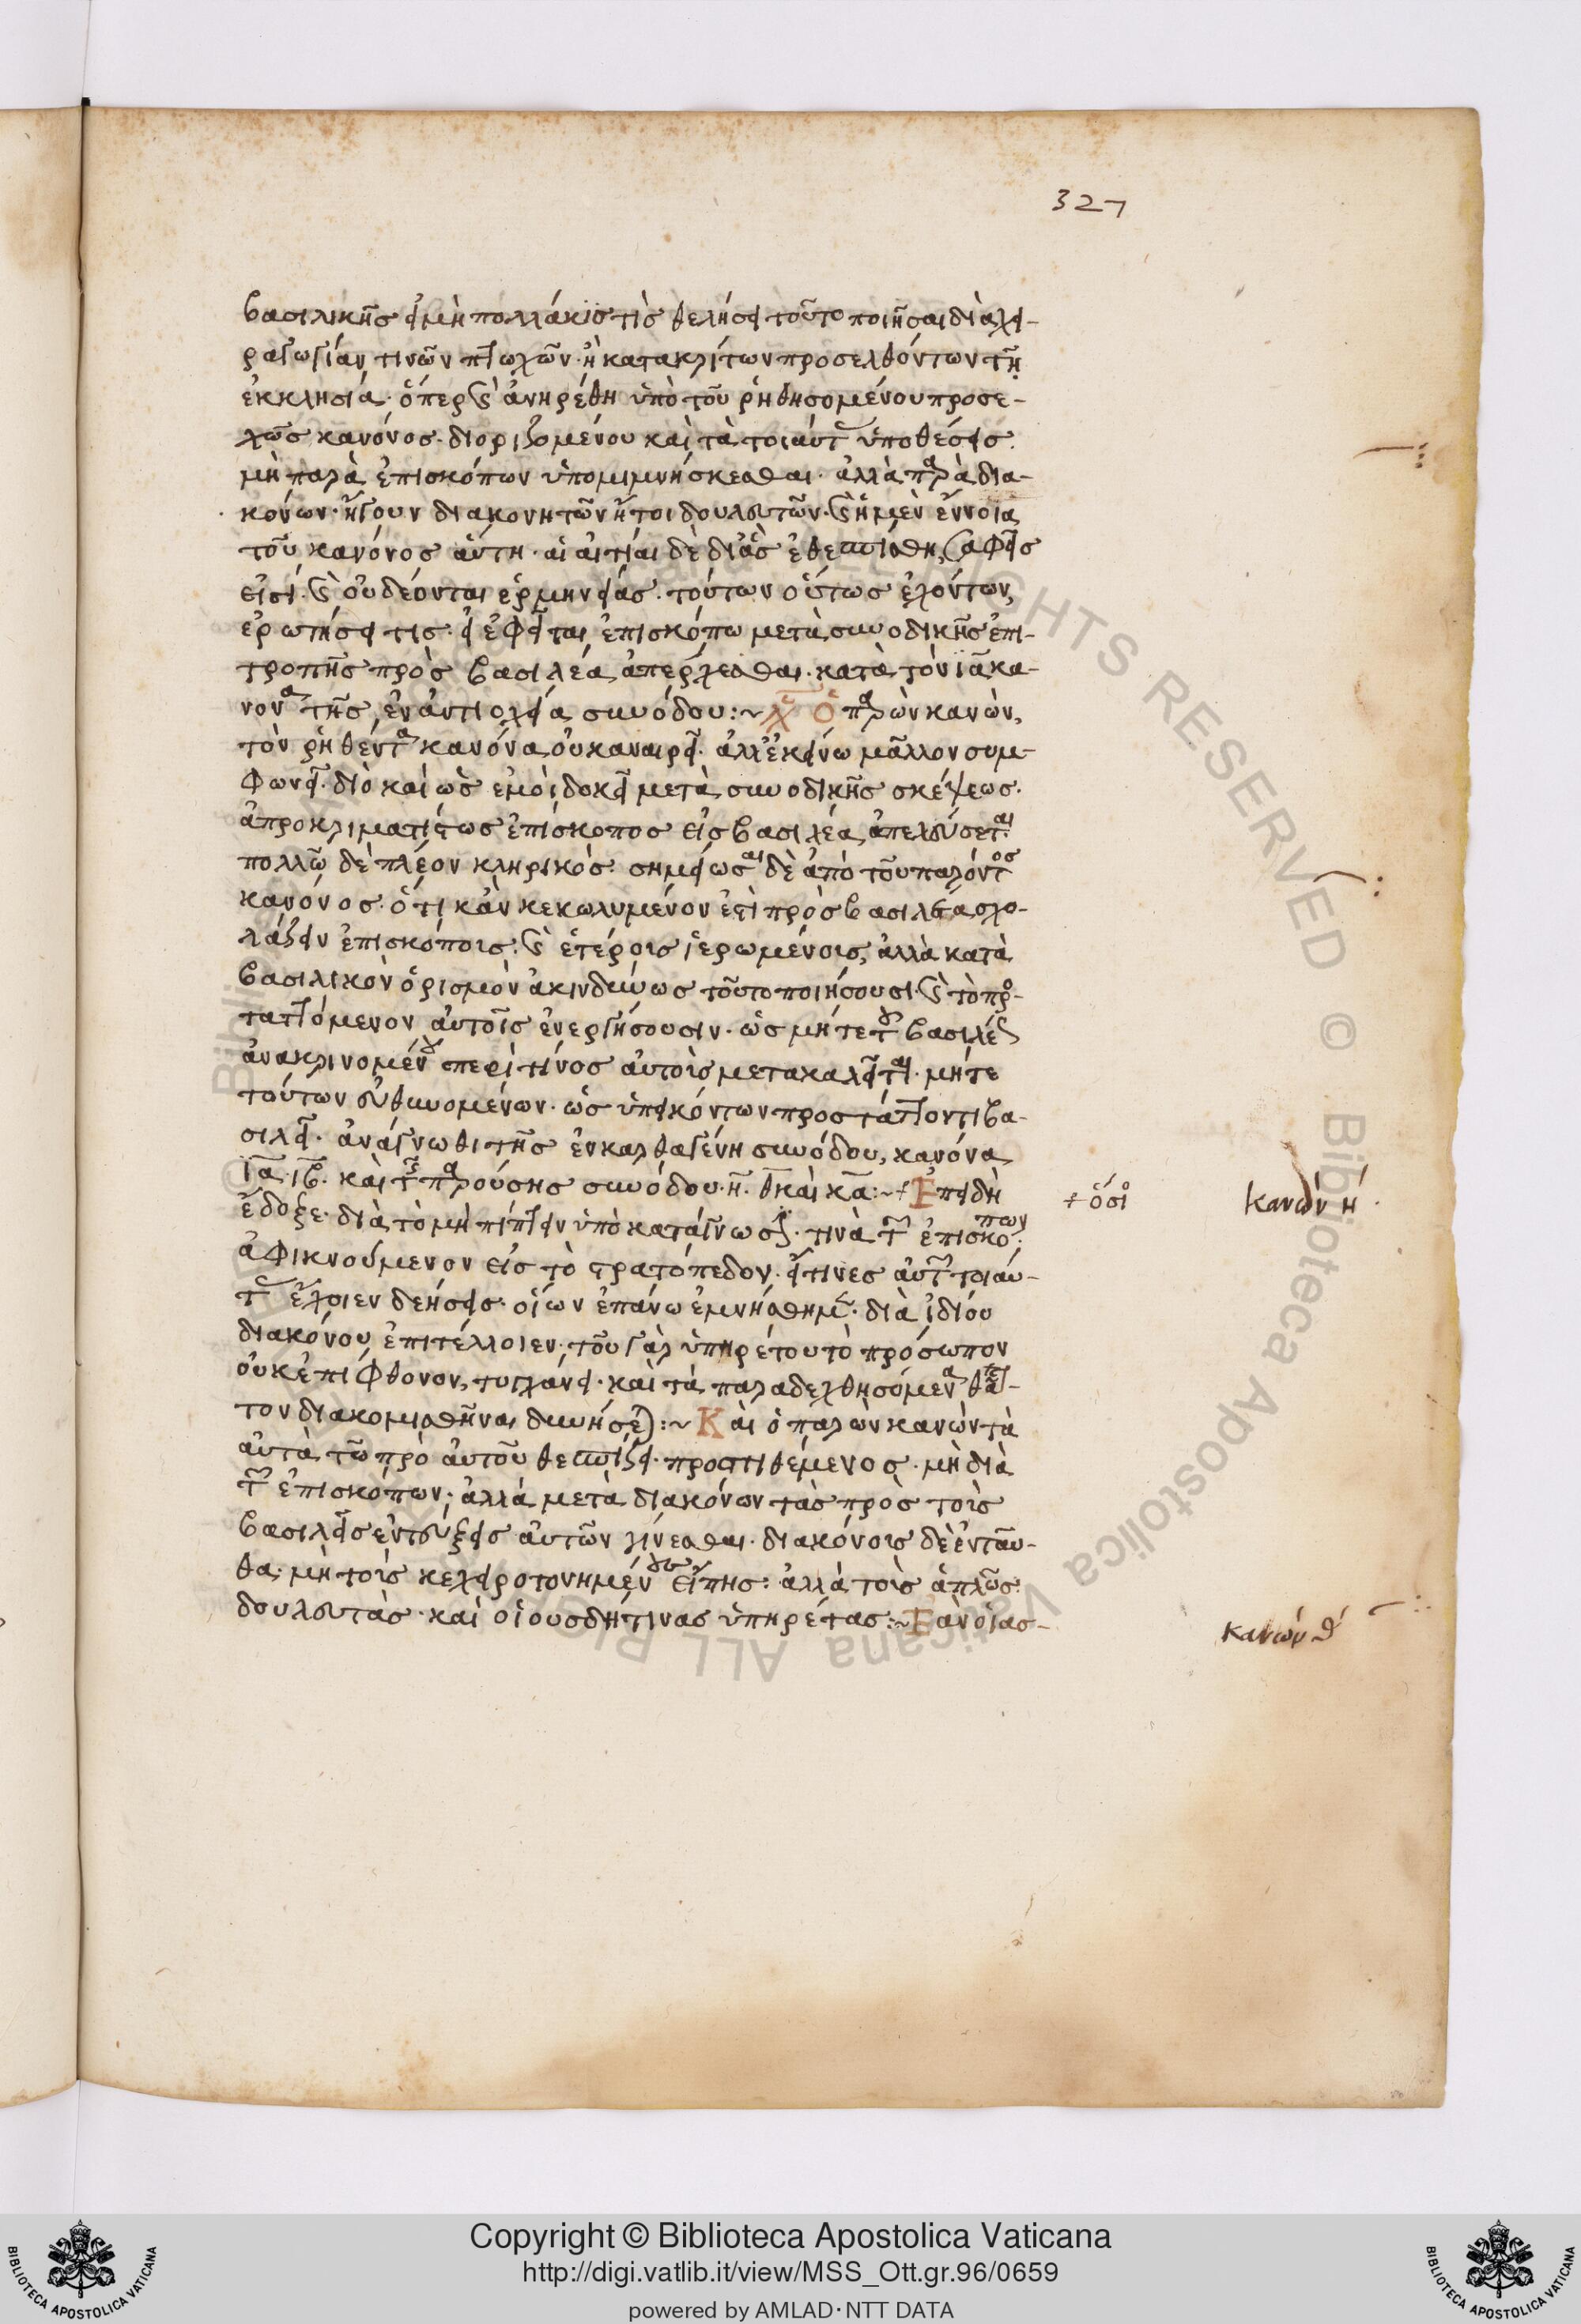 327
βασιλικῆς εἰ μὴ πολλάκις τὶς θελήσει τοῦτο ποιῆσαι διὰ χει-
ραγωγίαν τινῶν πτωχῶν· ἢ κατακρίτων προσελθόντων τῇ
ἐκκλησία· ὅπερ καὶ ἀνηρέθη ὑπὸ τοῦ ῥηθησομένου προσε-
χῶς κανόνος· διοριζομένου καὶ τὰ τοιαύτ ὑποθέσεις
μὴ παρὰ ἐπισκόπων ὑπομιμνήσκεσθαι· ἀλλὰ παρὰ δια-
κόνων· ἤγουν διακονητῶν ἤτοι δουλευτῶν· καὶ ἡ μὲν ἔννοια
τοῦ κανόνος αὕτη· αἱ αἰτίαι δὲ δι ἃς ἐθεσπίσθη, σαφεῖς
εἰσί· καὶ οὐ δέονται ἑρμηνείας· τούτων οὕτως ἐχόντων,
ἐρωτήσει τις· εἰ ἐφεῖται ἐπισκόπω μετὰ συνοδικῆς ἐπι-
τροπῆς πρὸς βασιλέα ἀπέρχεσθαι· κατὰ τὸν ια κα-
νονα τῆς ἐν ἀντιοχεία συνόδου:~ Ὁ παρὼν κανὼν,
τὸν ῥηθέντα κανόνα οὐκ αναιρεῖ· ἀλλ ἐκείνω μᾶλλον συμ-
φωνεῖ· διὸ καὶ ὡς ἐμοὶ δοκεῖ μετὰ συνοδικῆς σκέψεως·
ἀπροκριματίστως ἐπίσκοπος εἰς βασιλέα ἀπελεύσεται
πολλῶ δὲ πλέον κληρικὸς· σημείωσαι δὲ ἀπὸ τοῦ παρόντος
κανόνος· ὅτι κἂν κεκωλυμένον ἐστὶ πρὸς βασιλέα σχο-
λάζειν ἐπισκόποις· καὶ ἑτέροις ἱερωμένοις, ἀλλὰ κατὰ
βασιλικὸν ὁρισμὸν ἀκινδύνως τοῦτο ποιήσουσι καὶ τὸ προ-
ταττόμενον αὐτοῖς ἐνεργήσουσιν· ὡς μήτε τοῦ βασιλέως
ἀνακρινομένου περὶ τίνος αὐτοῖς μετακαλεῖται· μήτε
τούτων εὐθυνομένων· ὡς ὑπεικόντων προστάττοντι βα-
σιλεῖ· ἀνάγνωθι τῆς ἐν καρθαγένη συνόδου, κανόνα
ια ιβ· καὶ τῆς παρούσης συνόδου· η· θ καὶ κα:~ + Ἐπειδὴ
ἔδοξε· διὰ τὸ μὴ πίπτειν ὑπὸ κατάγνωσιν· τινὰ τῶν ἐπισκόπων
ἀφικνούμενον εἰς τὸ στρατόπεδον· εἴτινες αὐτῶν τοιαύ-
τας ἔχοιεν δεήσεις· οἵων ἐπάνω ἐμνήσθημεν· διὰ ἰδίου
διακόνου ἐπιτέλλοιεν· τοῦ γὰρ ὑπηρέτου τὸ πρόσωπον
οὐκ ἐπίφθονον, τυγχάνει· καὶ τὰ παραδειχθησόμενα θᾶτ-
τον διακομισθῆναι δυνήσεται:~ Καὶ ὁ παρὼν κανὼν τὰ
αὐτὰ τῶ πρὸ αὐτοῦ θεσπίζει· προστιθέμενος· μὴ διὰ
τῶν ἐπισκόπων· ἀλλὰ μετὰ διακόνων τὰς πρὸς τοῖς
βασιλεῖς ἐντεύξεις αὐτῶν γίνεσθαι· διακόνοις δὲ ἐνταῦ-
θα· μὴ τοῖς κεχειροτονημένους εἴπης· ἀλλὰ τοῖς ἁπλῶς
δουλευτὰς· καὶ οἱουσδήτινας ὑπηρέτας:~ Ἐὰν οἱας-
+ ὅσιο
Κανὼν η
κανών θ
Copyright © Biblioteca Apostolica Vaticana
http://digi.vatlib.it/view/MSS_Ott.gr.96/0659
powered by AMLAD·NTT DATA